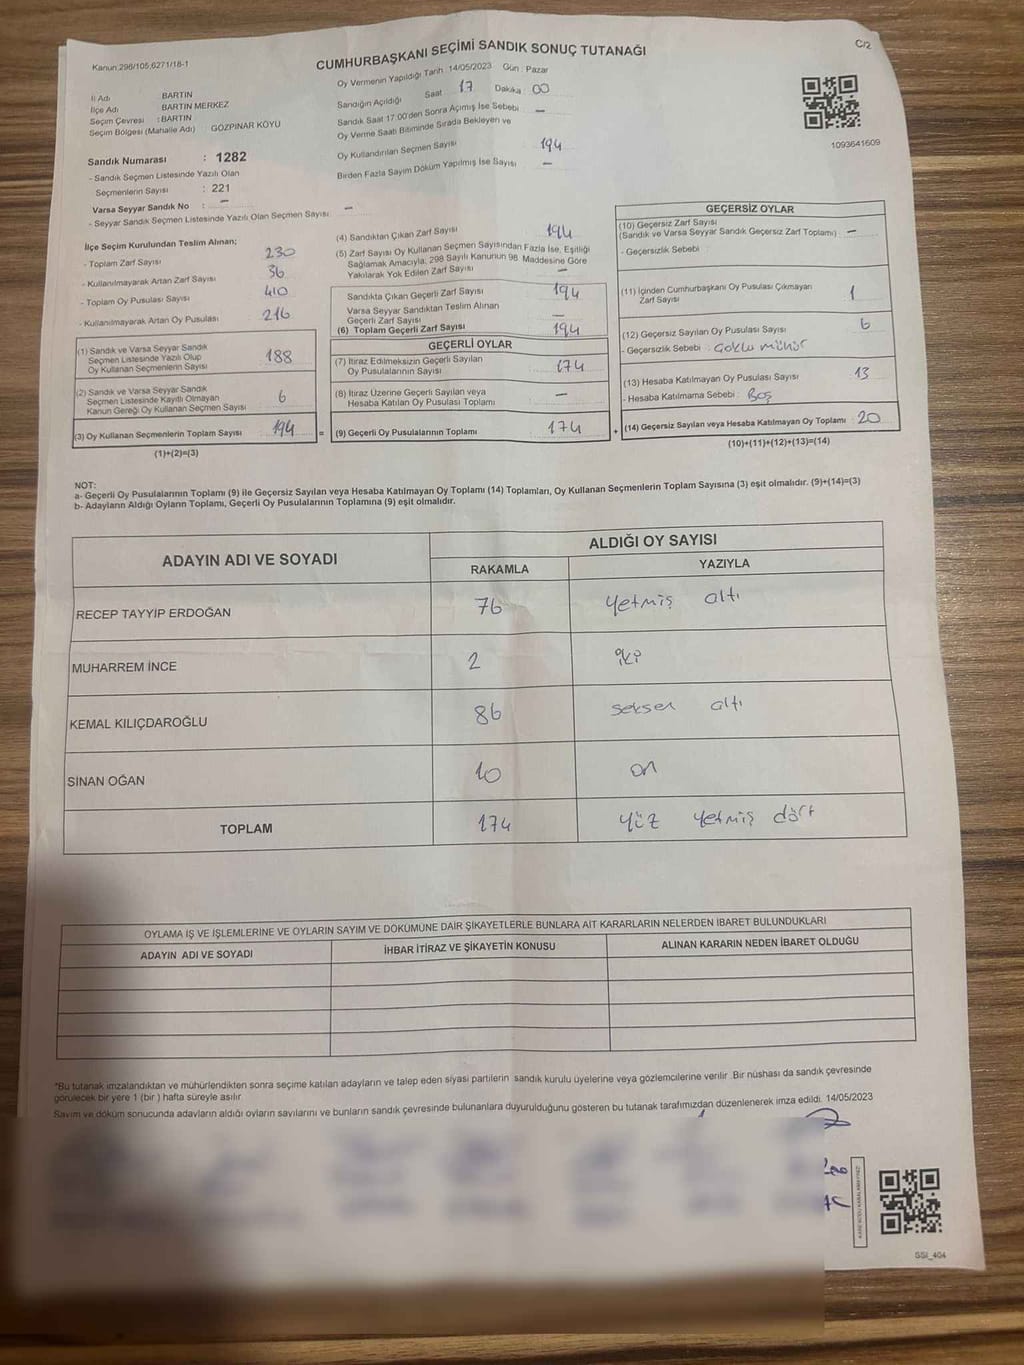 Kanun 298/105,6271/18-1
CUMHURBAŞKANI SEÇİMİ SANDIK SONUÇ TUTANAĞI
C/2
Oy Vermenin Yapıldığı Tarih 14/05/2023 Gün : Pazar
İl Adı BARTIN
İlçe Adı BARTIN MERKEZ
Seçim Çevresi : BARTIN
Seçim Bölgesi (Mahalle Adı) GÖZPINAR KÖYÜ
Sandık Numarası : 1282
- Sandık Seçmen Listesinde Yazılı Olan
Seçmenlerin Sayısı : 221
Varsa Seyyar Sandık No : –
- Seyyar Sandık Seçmen Listesinde Yazılı Olan Seçmen Sayısı –
Sandığın Açıldığı Saat 17 Dakika 00
Sandık Saat 17:00'den Sonra Açımış İse Sebebi –
Oy Verme Saati Bitiminde Sırada Bekleyen ve
Oy Kullandırılan Seçmen Sayısı 194
Birden Fazla Sayım Döküm Yapılmış İse Sayısı –
1093641609
İlçe Seçim Kurulundan Teslim Alınan;
- Toplam Zarf Sayısı 230
- Kullanılmayarak Artan Zarf Sayısı 36
- Toplam Oy Pusulası Sayısı 410
- Kullanılmayarak Artan Oy Pusulası 216
(1) Sandık ve Varsa Seyyar Sandık
Seçmen Listesinde Yazılı Olup
Oy Kullanan Seçmenlerin Sayısı 188
(2) Sandık ve Varsa Seyyar Sandık
Seçmen Listesinde Kayıtlı Olmayan
Kanun Gereği Oy Kullanan Seçmen Sayısı 6
(3) Oy Kullanan Seçmenlerin Toplam Sayısı 194
(1)+(2)=(3)
(4) Sandıktan Çıkan Zarf Sayısı 194
(5) Zarf Sayısı Oy Kullanan Seçmen Sayısından Fazla İse, Eşitliği
Sağlamak Amacıyla; 298 Sayılı Kanunun 98 Maddesine Göre
Yakılarak Yok Edilen Zarf Sayısı –
Sandıkta Çıkan Geçerli Zarf Sayısı 194
Varsa Seyyar Sandıktan Teslim Alınan
Geçerli Zarf Sayısı –
(6) Toplam Geçerli Zarf Sayısı 194
GEÇERLİ OYLAR
(7) İtiraz Edilmeksizin Geçerli Sayılan
Oy Pusulalarının Sayısı 174
(8) İtiraz Üzerine Geçerli Sayılan veya
Hesaba Katılan Oy Pusulası Toplamı –
= (9) Geçerli Oy Pusulalarının Toplamı 174
GEÇERSİZ OYLAR
(10) Geçersiz Zarf Sayısı
(Sandık ve Varsa Seyyar Sandık Geçersiz Zarf Toplamı) –
- Geçersizlik Sebebi
(11) İçinden Cumhurbaşkanı Oy Pusulası Çıkmayan
Zarf Sayısı 1
(12) Geçersiz Sayılan Oy Pusulası Sayısı 6
- Geçersizlik Sebebi : Çoklu mühür
(13) Hesaba Katılmayan Oy Pusulası Sayısı 13
- Hesaba Katılmama Sebebi : Boş
+ (14) Geçersiz Sayılan veya Hesaba Katılmayan Oy Toplamı : 20
(10)+(11)+(12)+(13)=(14)
NOT:
a- Geçerli Oy Pusulalarının Toplamı (9) ile Geçersiz Sayılan veya Hesaba Katılmayan Oy Toplamı (14) Toplamları, Oy Kullanan Seçmenlerin Toplam Sayısına (3) eşit olmalıdır. (9)+(14)=(3)
b- Adayların Aldığı Oyların Toplamı, Geçerli Oy Pusulalarının Toplamına (9) eşit olmalıdır.
ADAYIN ADI VE SOYADI
ALDIĞI OY SAYISI
RAKAMLA YAZIYLA
RECEP TAYYİP ERDOĞAN 76 yetmiş altı
MUHARREM İNCE 2 iki
KEMAL KILIÇDAROĞLU 86 seksen altı
SİNAN OĞAN 10 on
TOPLAM 174 yüz yetmiş dört
OYLAMA İŞ VE İŞLEMLERİNE VE OYLARIN SAYIM VE DÖKÜMÜNE DAİR ŞİKAYETLERLE BUNLARA AİT KARARLARIN NELERDEN İBARET BULUNDUKLARI
ADAYIN ADI VE SOYADI İHBAR İTİRAZ VE ŞİKAYETİN KONUSU ALINAN KARARIN NEDEN İBARET OLDUĞU
*Bu tutanak imzalandıktan ve mühürlendikten sonra seçime katılan adayların ve talep eden siyasi partilerin sandık kurulu üyelerine veya gözlemcilerine verilir. Bir nüshası da sandık çevresinde
görülecek bir yere 1 (bir ) hafta süreyle asılır.
Sayım ve döküm sonucunda adayların aldığı oyların sayılarını ve bunların sandık çevresinde bulunanlara duyurulduğunu gösteren bu tutanak tarafımızdan düzenlenerek imza edildi. 14/05/2023
KAREKODU KARALAMAYINIZ!
SSI_404